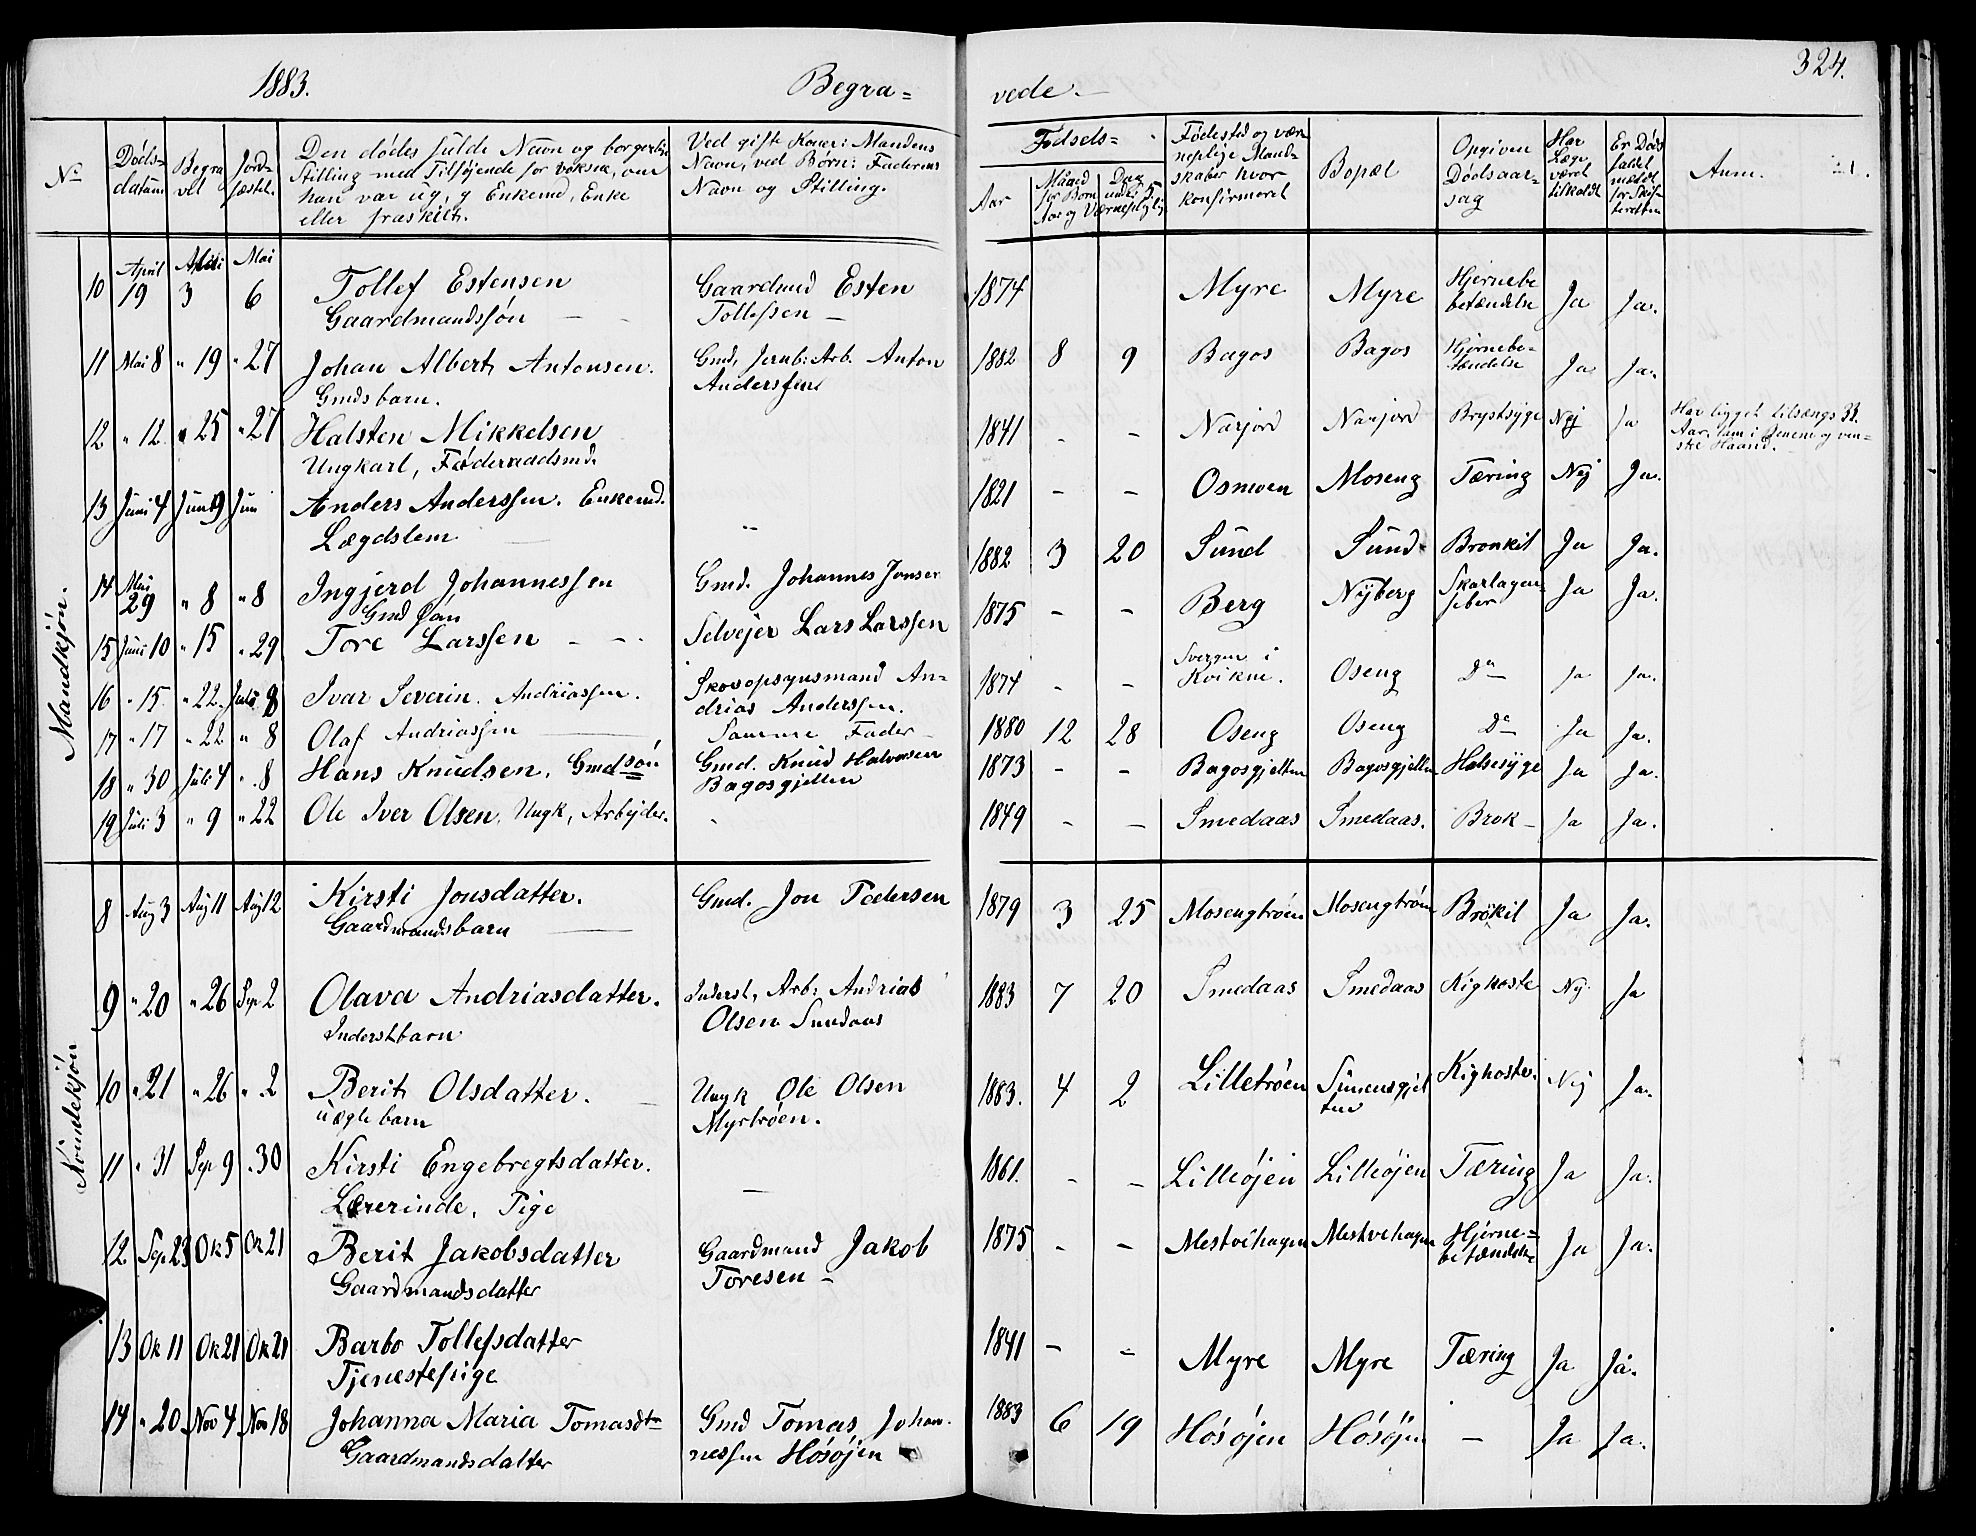 1883.
Begra=
vede.
324.
No
Døds-
datum
Begra
vet
Jord-
fæstet.
Den dødes fulde Navn og borgerlige
Stilling med Tilføjende for voksne, om
han var ug, g Enkemd, Enke
eller fraskilt.
Ved gifte Koner: Mandens
Navn, ved Børn: Faderens
Navn og Stilling.
Fødsels=
Aar
Maaned
for Børn
Dag
Fødested og vær
nepligtige Mand-
skaber hvor
konfirmeret
Bopæl
Opgiven
Dødsaar-
sag
Har
Læge
været
tilkaldt
Er Døds
faldet
meldt
for Skif-
teretten
Anm.
Mandkjøn.
10 April 19 3 Mai 6 Tollef Estensen Gaardmand Esten 1874 Myre Myre Hjernebe Ja Ja.
Gaardmandssøn Tollefsen betændelse
11 Mai 8 " 19 " 27 Johan Albert Antonsen. Gmd, Jernb: Arb. Anton 1882 8 9 Bagos Bagos Hjernebe- Ja Ja.
Gmdsbarn. Anderssen tændelse
12 " 12 " 25 " 27 Halsten Mikkelsen 1841 - - Narjord Narjord Brystsyge Nej Ja Har ligget tilsængs 33.
Ungkarl, Føderaadsmd. Aar, lam i Benene og ven-
ske Haand.
13 Juni 4 Juni 9 Juni Anders Anderssen. Enkemd. " 1821 - - Osmoen Moseng Tæring Nej Ja.
Lægdslem
14 Mai 29 " 8 " 8 Ingjerd Johannessen Gmd. Johannes Jonsen 1882 3 20 Sund Sund Bronkit Ja Ja.
Gmd søn
15 Juni 10 " 15 " 29 Tore Larssen Selvejer Lars Larssen 1875 - - Berg Nyberg Skarlagens Ja Ja.
feber
16 " 15 " 22 Juli 8 Ivar Severin Andriassen. Skovopsynsmand An= 1874 - - Svergen i Oseng Do Ja Ja.
drias Anderssen. Kvikne.
17 " 17 " 22 " 8 Olaf Andriassen Samme Fader 1880 12 28 Oseng Oseng Do Ja Ja.
18 " 30 Juli 4 " 8 Hans Knudsen, Gmdsøn Gmd. Knud Halvorsen 1873 - - Bagosgjelten Bagosgjelten Halsesyge Ja Ja.
Bagosgjelten
19 Juli 3 " 9 " 22 Ole Iver Olsen, Ungk, Arbejder. - 1849 - - Smedaas Smedaas. Brok Ja Ja.
Kvindekjøn
8 Aug 3 Aug 11 Aug 12 Kirsti Jonsdatter. Gmd. Jon Pedersen 1879 3 25 Mosengtrøen Mosengtrøen Brokit Ja Ja.
Gaardmandsbarn
9 " 20 " 26 Sep 2 Olava Andriasdatter. Inderst, Arb: Andrias 1883 7 20 Smedaas Smedaas Kighoste Nej Ja
Inderstbarn Olsen Smedaas
10 " 21 " 26 " 2 Berit Olsdatter. Ungk Ole Olsen 1883. 4 2 Lilletrøen Simensgjel Kighoste. Nej Ja.
uægte barn Myrtrøen. ten
11 " 31 Sep 9 " 30 Kirsti Engebregtsdatter. - 1861. - - Lilleøjen Lilleøjen Tæring Ja Ja.
Lærerinde, Pige
12 Sep 23 Ok 5 Ok 21 Berit Jakobsdatter Gaardmand Jakob 1875 - - Mestvehagen Mestvehagen Hjerne= Ja Ja.
Gaardmandsdatter Toresen betændelse
13 Ok 11 Ok 21 Ok 21 Barbo Tollefsdatter 1841 - - Myre Myre Tæring Ja Ja.
Tjenestepige
14 " 20 Nov 4 Nov 18 Johanna Maria Tomasdtr Gmd Tomas Johan- 1883 6 19 Høsøjen Høsøjen - Ja Ja.
Gaardmandsdatter nessen Høsøjen